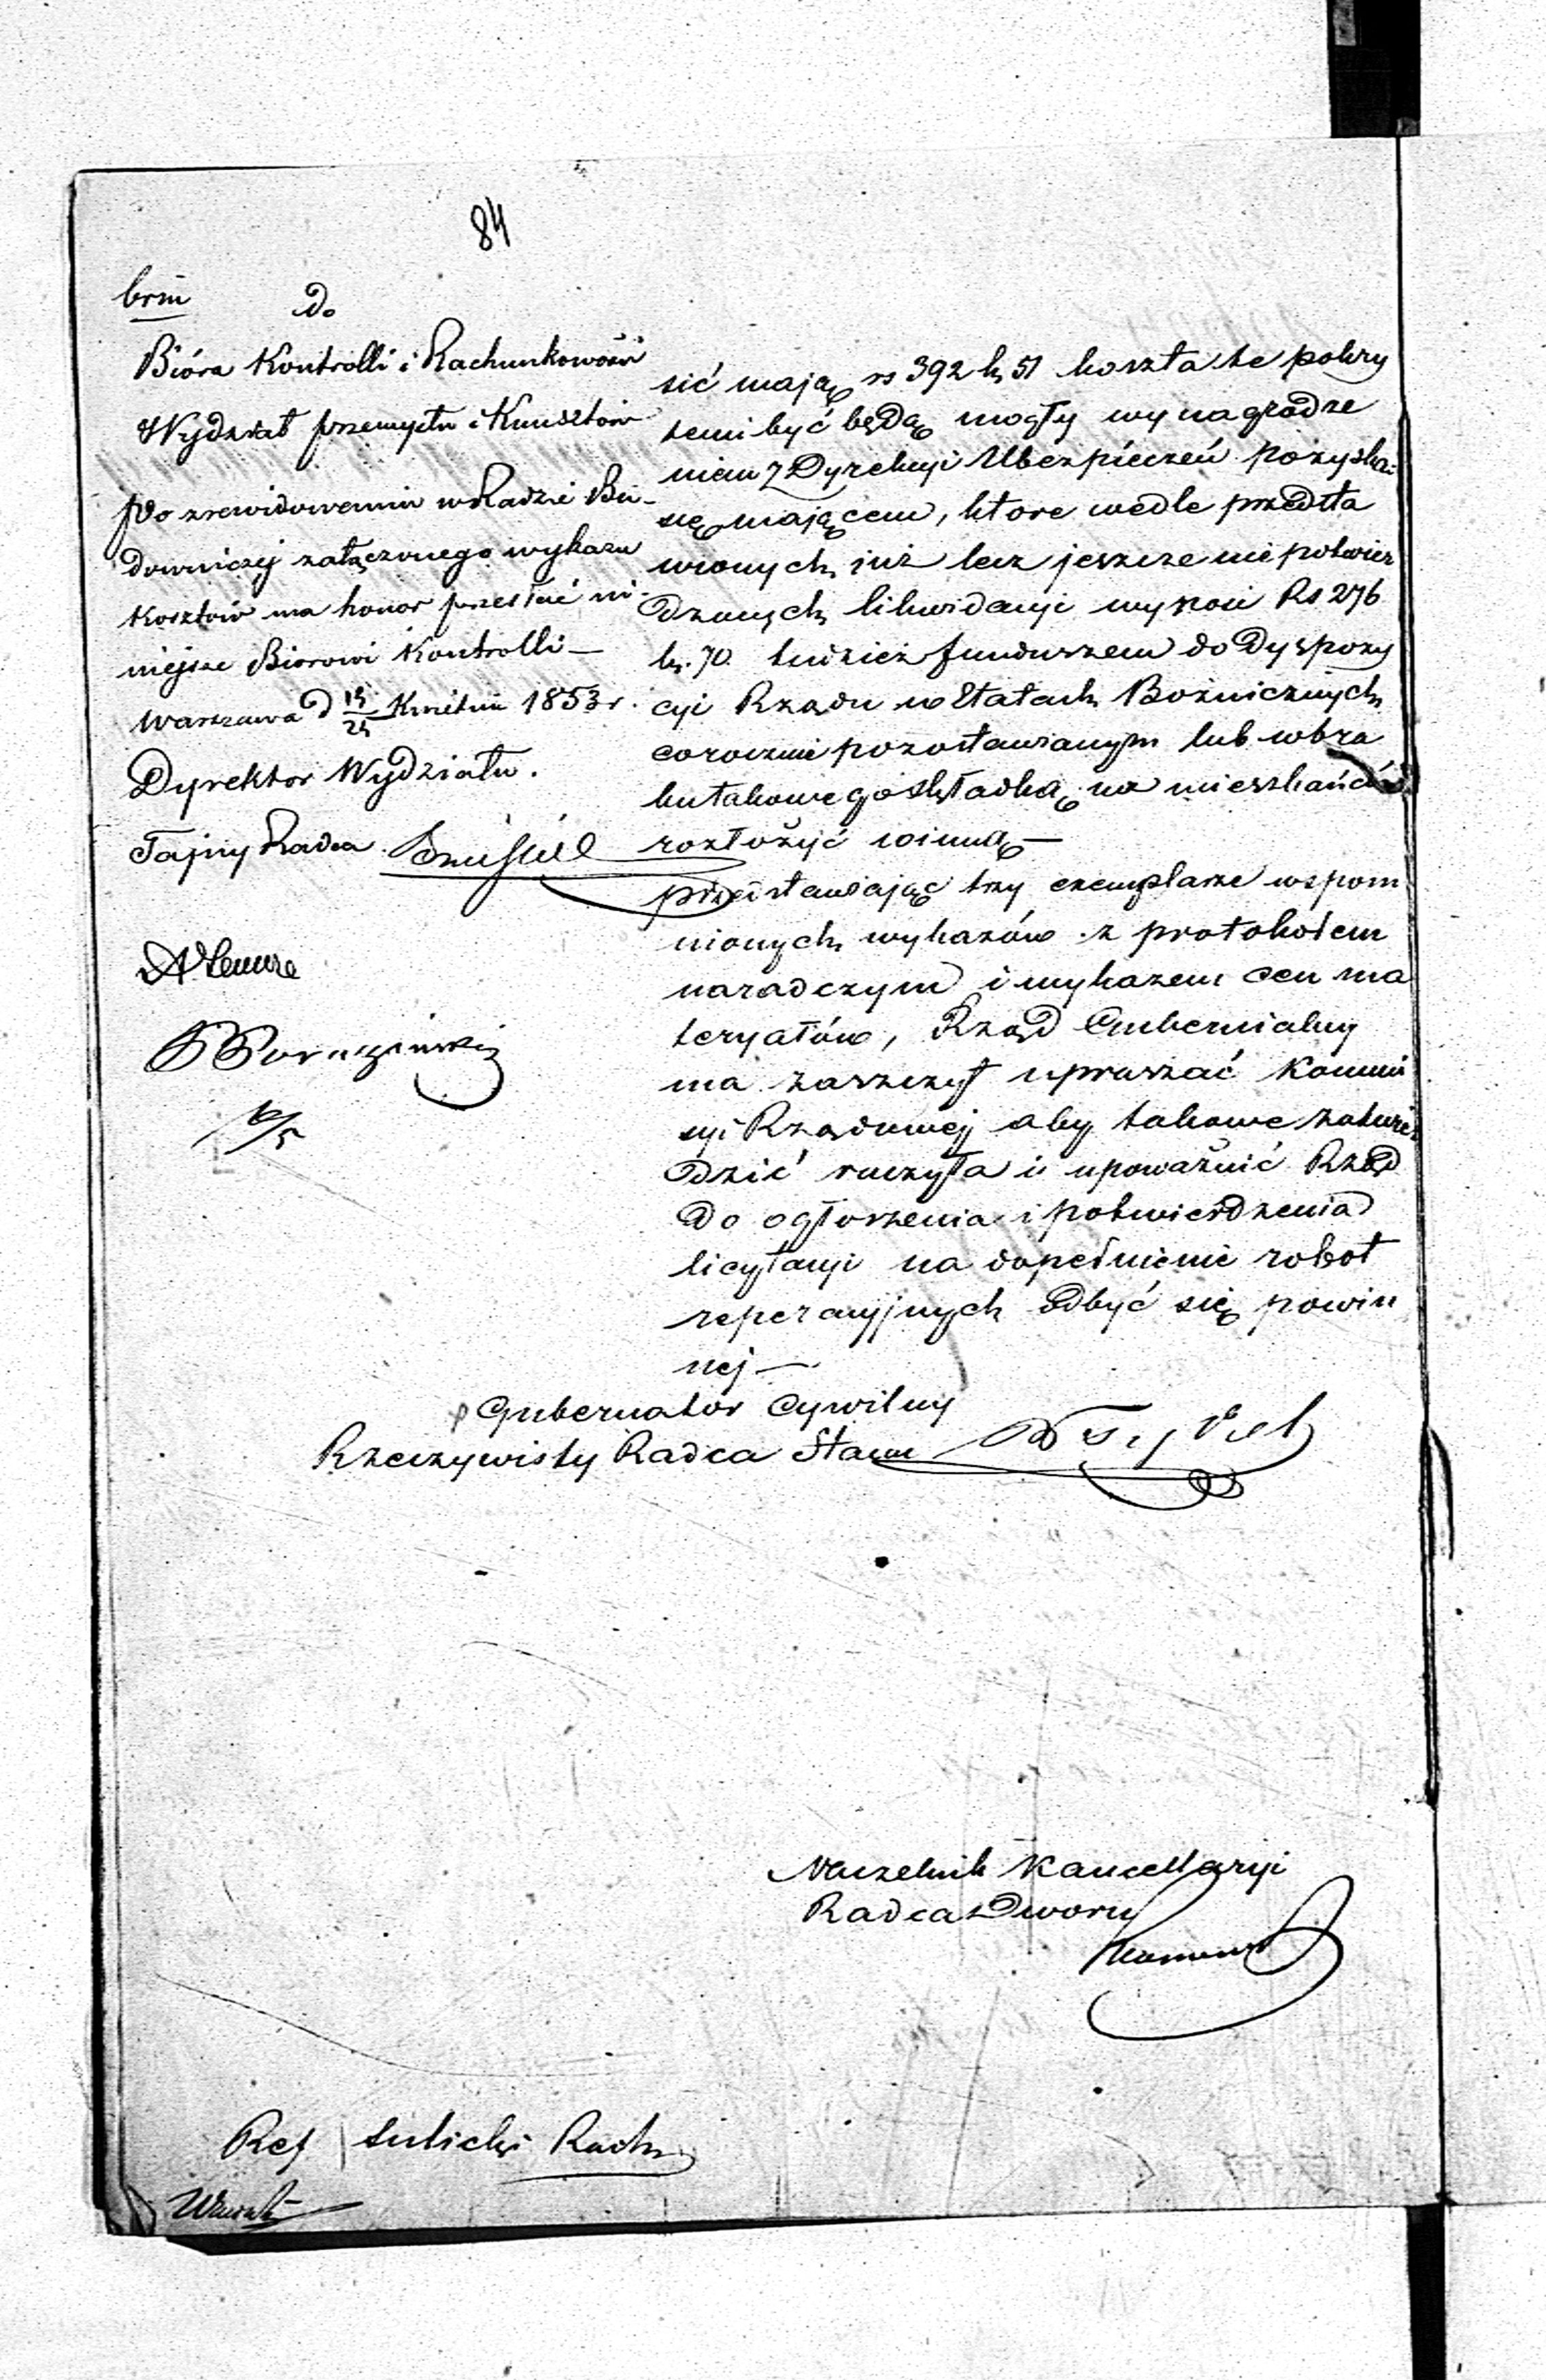 84
brm
do
Bióra Kontrolli i Rachunkowości
Wydział przemysłu i Kunsztów
Po zrewidowaniu w Radzie Bu-
downiczej załączonego wykazu
kosztów ma honor przesłać ni-
niejsze Biorowi Kontrolli —
Warszawa d 13/25 Kwietnia 1853 r.
Dyrektor Wydziału.
Tajny Radca
6/5
sić mają rs 392 k 51 koszta te pokry
temi być będą mogły wynagrodze
niem z Dyrekcyi Ubezpieczeń pozyskać
się mającem, ktore wedle przedsta
wionych już lecz jeszcze nie potwier
dzonych likwidacyi wynosi Rs 276
k. 70. tudzież funduszem do Dyspozy
cyi Rządu w Etatach Bożnicznych
corocznie pozostawianym lub w bra
ku takowego składką na mieszkańców
rozłożyć winną —
przedstawiając trzy exemplarze wspom
nionych wykazów z protokołem
naradczym i wykazem cen ma
teryałów, Rząd Gubernialny
ma zaszczyt upraszać Kommis
syi Rządowej aby takowe zatwier
dzić raczyła i upoważnić Rząd
do ogłoszenia i potwierdzenia
licytacyi na dopełnienie robot
reperacyjnych odbyć się powin
nej —
p Gubernator Cywilny
Rzeczywisty Radca Stanu
Naczelnik Kancellaryi
Radca Dworu
Ref Sulicki Radz